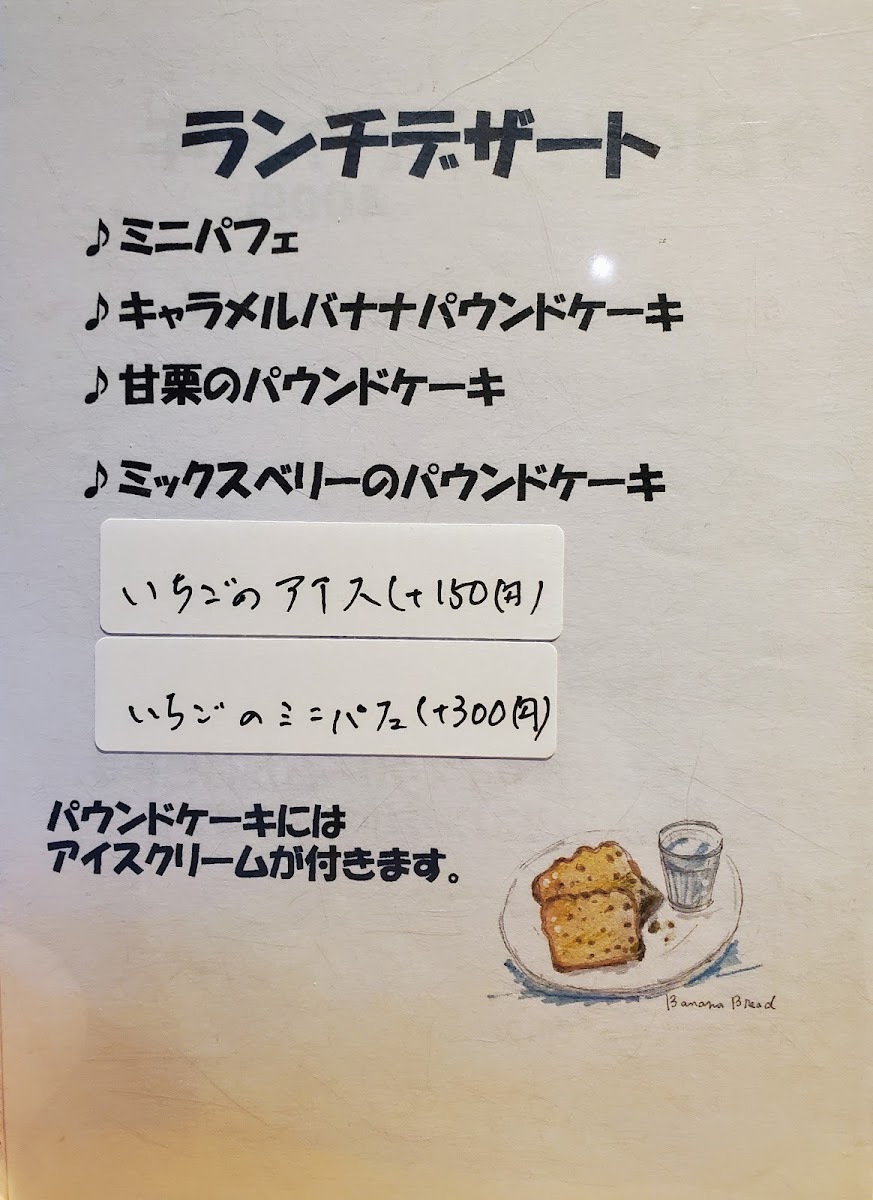 ランチデザート
♪ミニパフェ
♪キャラメルバナナパウンドケーキ
♪甘栗のパウンドケーキ
♪ミックスベリーのパウンドケーキ
いちごのアイス(+150円)
いちごのミニパフェ(+300円)
パウンドケーキには
アイスクリームが付きます。
Banana Bread